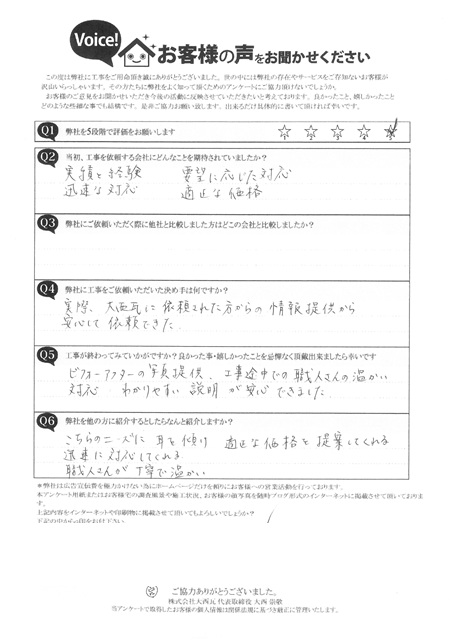 Voice!
お客様の声をお聞かせください
この度は弊社に工事をご用命頂き誠にありがとうございました。世の中には弊社の存在やサービスをご存知ないお客様が
沢山いらっしゃいます。その方たちに弊社をよく知って頂くためのアンケートにご協力頂けないでしょうか。
お客様のご意見をお聞かせいただき今後の活動に反映させていただきたいと考えております。良かったこと、嬉しかったこと
どのような些細な事でも結構です。是非ご協力お願い致します。出来るだけ具体的に書いて頂ければ幸いです。
Q1 弊社を5段階で評価をお願いします
Q2 当初、工事を依頼する会社にどんなことを期待されていましたか？
実績と経験 要望に応じた対応
迅速な対応 適正な価格
Q3 弊社にご依頼いただく際に他社と比較しました方はどこの会社と比較しましたか？
Q4 弊社に工事をご依頼いただいた決め手は何ですか？
実際、大西瓦に依頼された方からの情報提供から
安心して依頼できた.
Q5 工事が終わってみていかがですか？良かった事・嬉しかったことを忌憚なく頂戴出来ましたら幸いです
ビフォーアフターの写真提供、工事途中での職人さんの温かい
対応 わかりやすい説明が安心できました
Q6 弊社を他の方に紹介するとしたらなんと紹介しますか？
こちらのニーズに耳を傾け 適正な価格を提案してくれる
迅速に対応してくれる
職人さんが丁寧で温かい
＊弊社は広告宣伝費を極力かけない為にホームページだけを頼りにお客様への営業活動を行っております。
本アンケート用紙またはお客様宅の調査風景や施工状況、お客様の顔写真を随時ブログ形式のインターネットに掲載させて頂いております。
上記内容をインターネットや印刷物に掲載させて頂いてもよろしいでしょうか？
下記の中から○印をお付け下さい
ご協力ありがとうございました。
株式会社大西瓦 代表取締役 大西 崇敬
当アンケートで取得したお客様の個人情報は関係法規に基づき厳正に管理いたします。